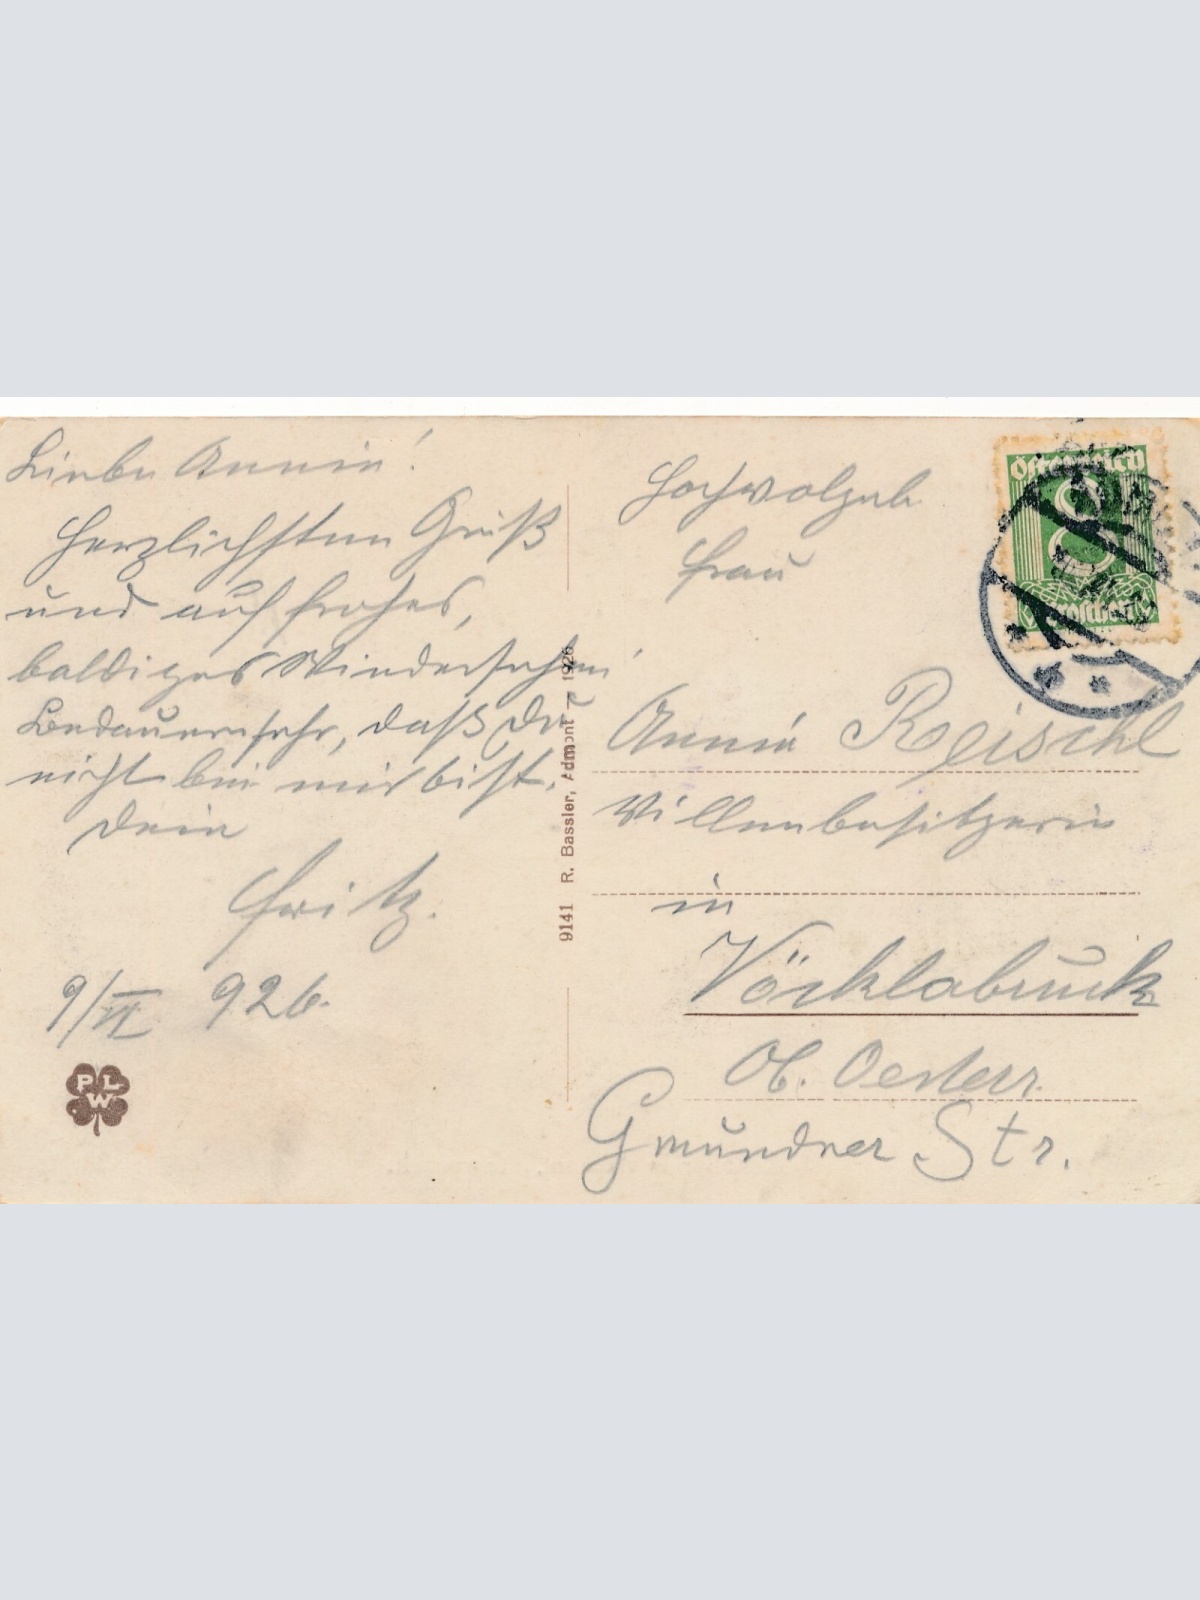 Liebe Annie!
Herzlichsten Gruß
und auf frohes,
baldiges Wiedersehen!
Bedauern sehr, daß Du
nicht bei mir bist.
Dein
Fritz.
9/VI 926.
PLW
9141 R. Bassler, Admont 1926
Österreich
8
Groschen
Hochwolgeb
Frau
Annie Reischl
Villenbesitzerin
in
Vöcklabruck
Ob. Oesterr.
Gmundner Str.